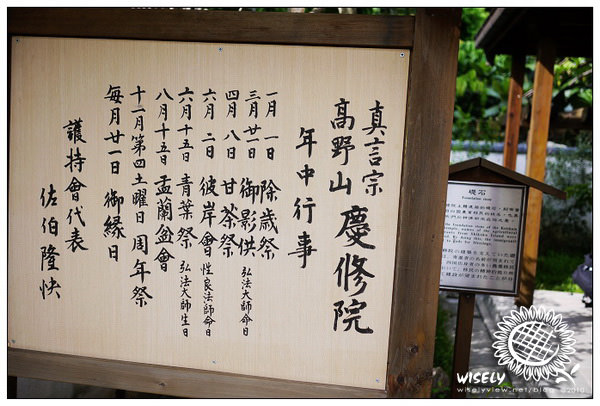 真言宗
高野山 慶修院
年中行事
一月一日 除歳祭
三月廿一日 御影供 弘法大師命日
四月八日 甘茶祭
六月二日 彼岸會 性良法師命日
六月十五日 青葉祭 弘法大師生日
八月十五日 盂蘭盆會
十一月第四土曜日 周年祭
毎月廿一日 御縁日
護持會代表
佐伯隆快
礎石
Foundation stone
WISELY
wiselyview.net/blog ©2010